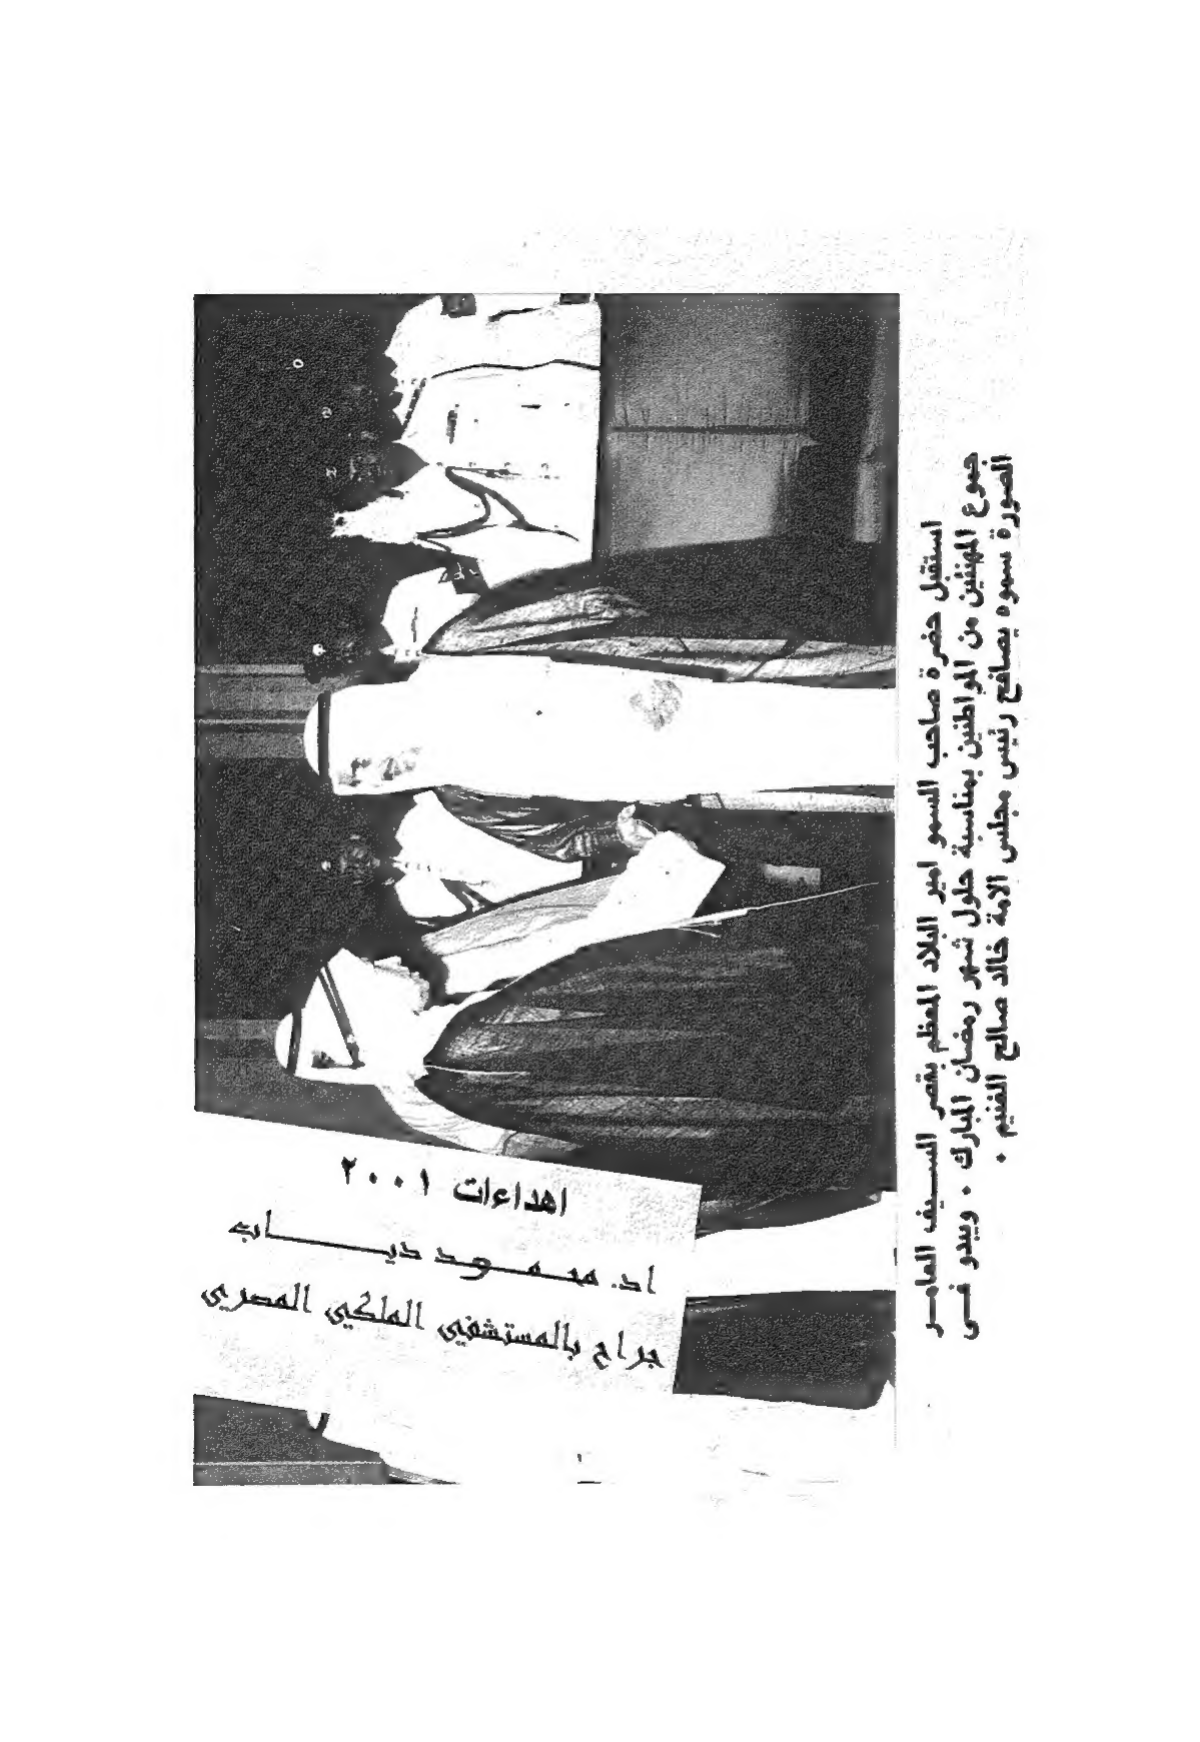 اهداءات ٢٠٠١
اد. محمد دياب
جراح بالمستشفي الملكي المصري
استقبل حضرة صاحب السمو امير البلاد المعظم بقصر السيف العامر
جموع المهنئين من المواطنين بمناسبة حلول شهر رمضان المبارك . ويبدو في
الصورة سموه يصافح رئيس مجلس الامة خالد صالح الغنيم .